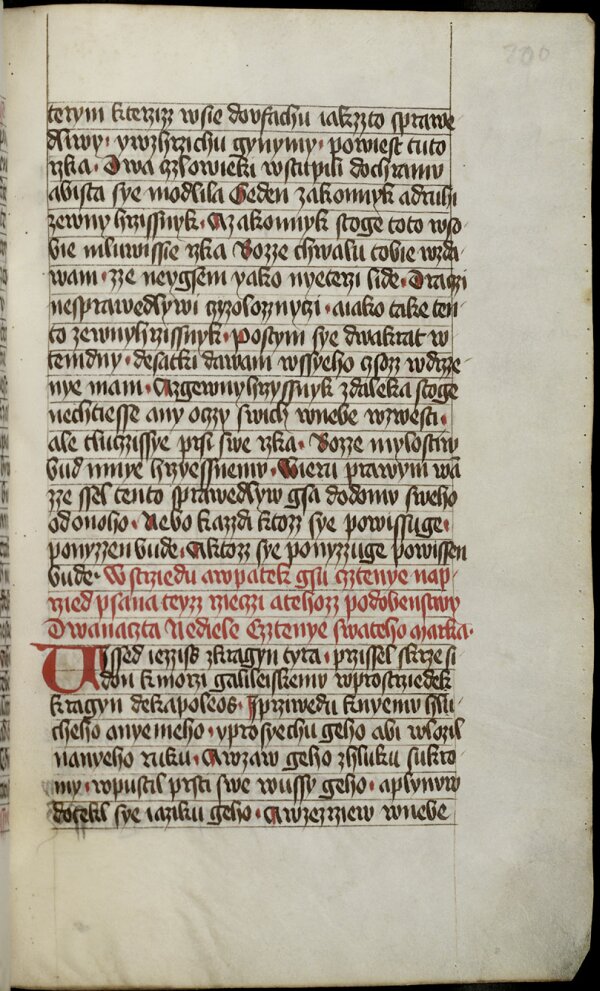 200
terym kterzizz wsie dovfachu iakzzto sprawe
dliwy · ywzhrzichu gynymy · powiest tuto
rzka · Dwa czlowieki wstupili dochramu
abista sye modlila Geden zakonnyk adruhi
zewny hrzissnyk · Azakonnyk stoge toto wso
bie mluwissie rzka Bozze chwalu tobie wzda
wam · zze neygsem yako nyeterzi lide · Draczi
nesprawedlywi czyzoloznyczi · aiako take ten
to zewnyhrzissnyk · Postym sye dwakrat w
temdny · desatki dawam wssyeho czsozz wdrze
nye mam · Azgewnyhrzyssnyk zdaleka stoge
nechtiesse any oczzy swich wnebe wzwesti ·
ale tluczissye prsi swe rzka · Bozze mylostiw
bud mnye hrzyessnemu · Wieru prawym wa
zze ssel tento sprawedlyw gsa dodomu sweho
odonoho · Nebo kazzdi ktozz sye powissuge ·
ponyzzen bude · Aktozz sye ponyzzuge powissen
bude · Wstrziedu awpatek gsu cztenye nap
rzied psana teyzz rzieczi atehozz podobenstwy
Dwanaczta Nediele Cztenye swateho Marka ·
Wssed iezziss zkragyn tyra · przissel skrze si
don kmorzi galileiskemu wprostrziedek
kragyn dekapoleos · Iprziwedu knyemu hlu
cheho anyemeho · yprosyechu geho abi wlozil
nanyeho ruku · Awzaw geho zhluku sukro
my · wpustil prsti swe wussy geho · aplynuw
dotekl sye iaziku geho · Awzezrziew wnebe